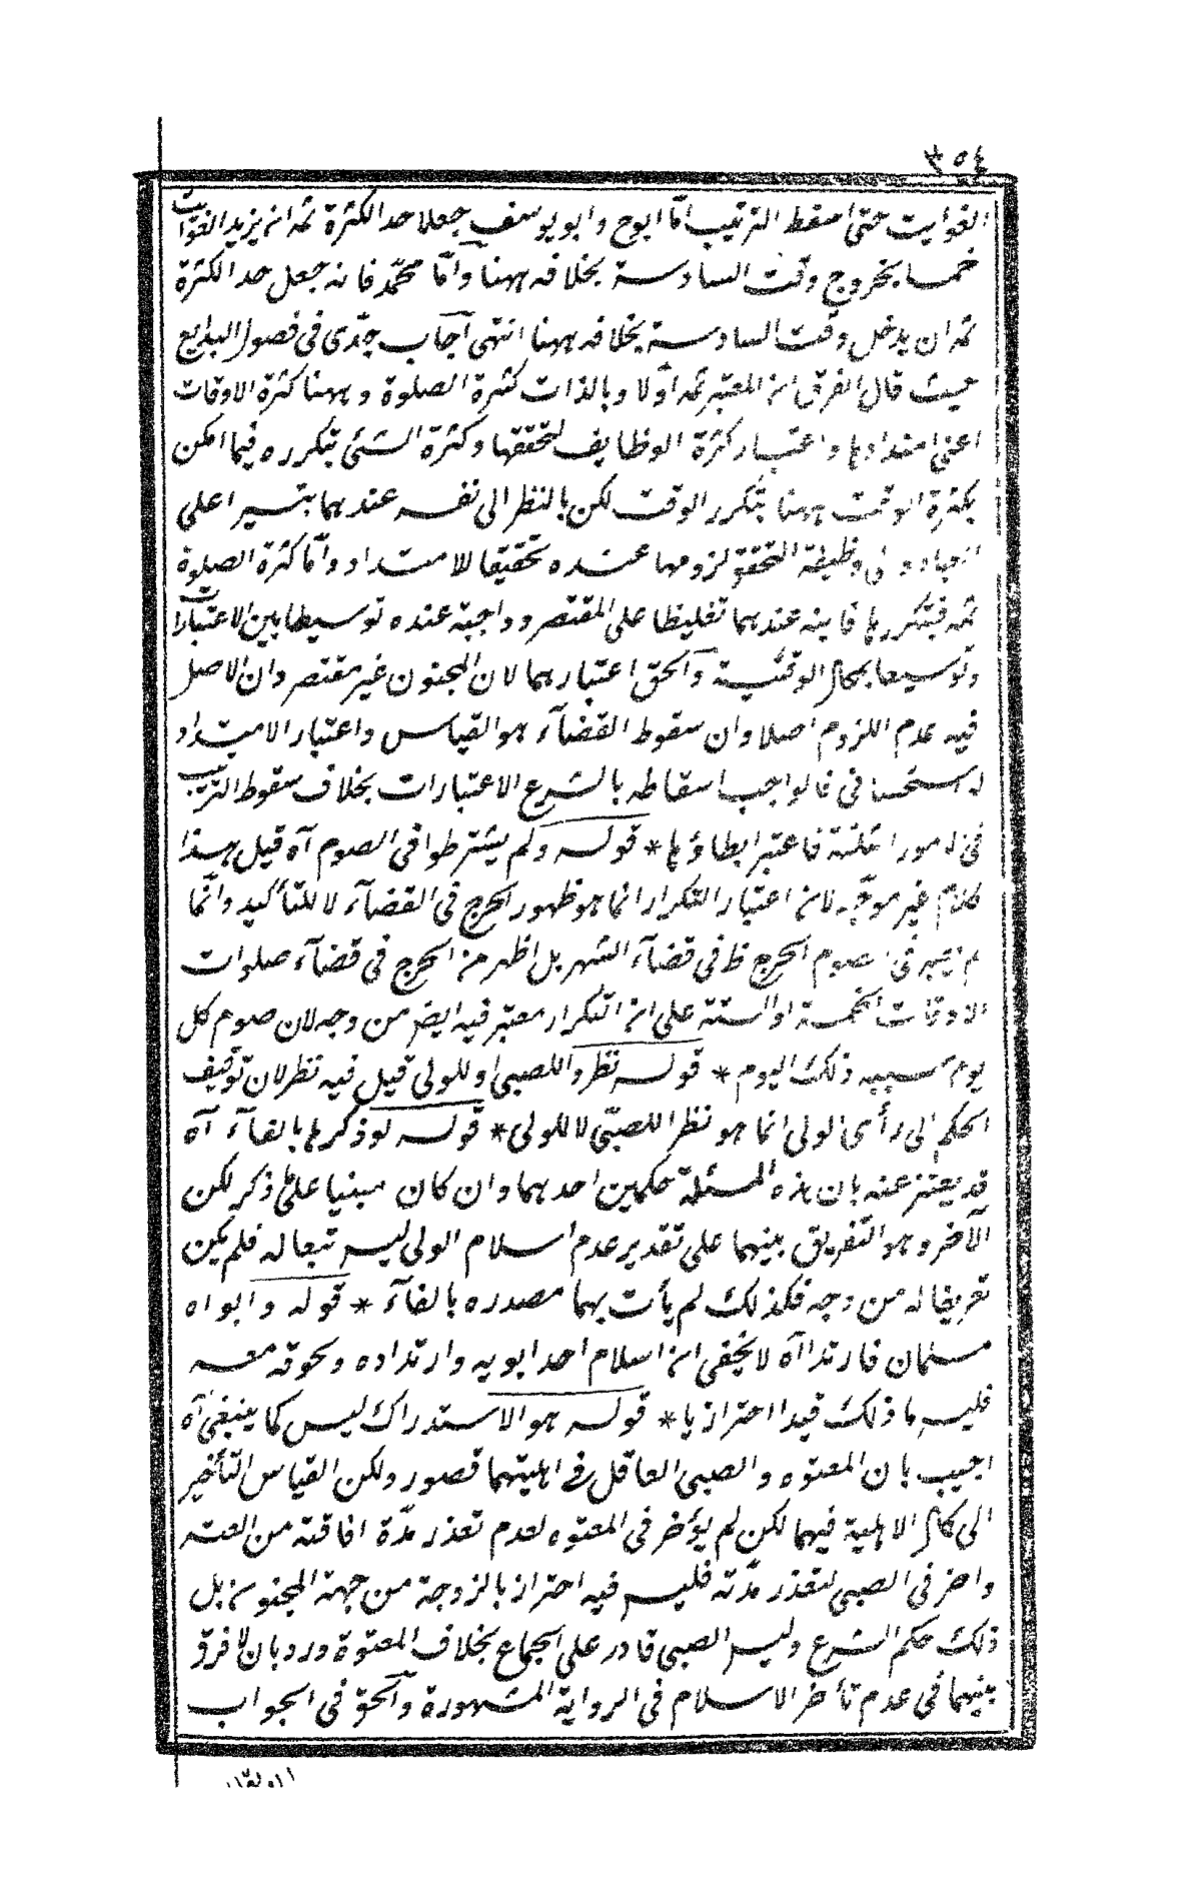 ٣٥٤
الفوايت حتى اسقط الترتيب امّا ابوح وابويوسف جعلا حد الكثرة ثمه ان يزيد الفوائت
خمسا بخروج وقت السادسة بخلافه ههنا وامّا محمّد فانه جعل حد الكثرة
ثمه ان يدخل وقت السادسة بخلافه ههنا انتهى آجاب جدّى فى فصول البدايع
حيث قال الفرق ان المعتبر ثمه اوّلا وبالذات كثرة الصلوة وههنا كثرة الاوقات
اعنى امتدادها واعتبار كثرة الوظايف لتحققها وكثرة الشئ بتكرره فيما امكن
كثرة الوقت ههنا بتكرر الوقت لكن بالنظر الى نفسه عندهما تيسيرا على
العباد والى وظيفة التحقق لزومها عنده تحقيقا للامتداد وامّا كثرة الصلوة
ثمه فبتكررها فاينه عندهما تغليظا على المقتصر وواجبة عنده توسيطا بين الاعتبارات
وتوسيعا بحال الوقتية والحق اعتبارهما لان المجنون غير مقتصر وان الاصل
فيه عدم اللزوم اصلا وان سقوط القضآء هو القياس واعتبار الامتداد
استحسانى فالواجب اسقاطه باشرع الاعتبارات بخلاف سقوط الترتيب
فى الامور الثلثة فاعتبر ابطاؤها * قوله ولم يشترطوا فى الصوم آه قيل هذا
كلام غير موجّه لان اعتبار التكرار انما هو ظهور الحرج فى القضآء لا للتأكيد وانّما
لم يعتبر فى الصوم الحرج ظ فى قضآء الشهر بل اظهر من الحرج فى قضآء صلوات
الاوقات الخمسة او الستة على ان التكرار معتبر فيه ايض من وجه لان صوم كل
يوم سببه ذلك اليوم * قوله نظرا للصبى او للولى قيل فيه نظر لان توقيف
الحكم الى رأى الولى انما هو نظر اللصبّى لا للولى * قوله لو ذكرها بالفآء آه
قد يعتذر عنه بان هذه المسئلة حكمين احدهما وان كان مبنيا على ما ذكر لكن
الآخر وهو التّفريق بينهما على تقدير عدم اسلام الولى ليس تبعا له فلم يكن
تعريضا له من وجه فكذلك لم يأت بهما مصدره بالفآء * قوله وابواه
مسلمان فارتدا آه لا يخفى ان اسلام احد ابويه وارتداده ولحوقه معه
فليس ما ذلك قيدا احترازيا * قوله هو الاستدراك ليس كما ينبغى آه
اجيب بان المعتوه والصبى العاقل فى اهليتهما قصور ولكن القياس التأخير
الى كمال الاهلية فيهما لكن لم يؤخر فى المعتوه لعدم تعذر مدّة افاقته من العته
واخر فى الصبى لتعذر مدّته فليس فيه احتراز بالزوجة من جهة المجنون بل
ذلك حكم الشرع وليس الصبى قادر على الجماع بخلاف المعتوة ورد بان لا فرق
بينهما فى عدم تأخر الاسلام فى الرواية المشهورة والحق فى الجواب